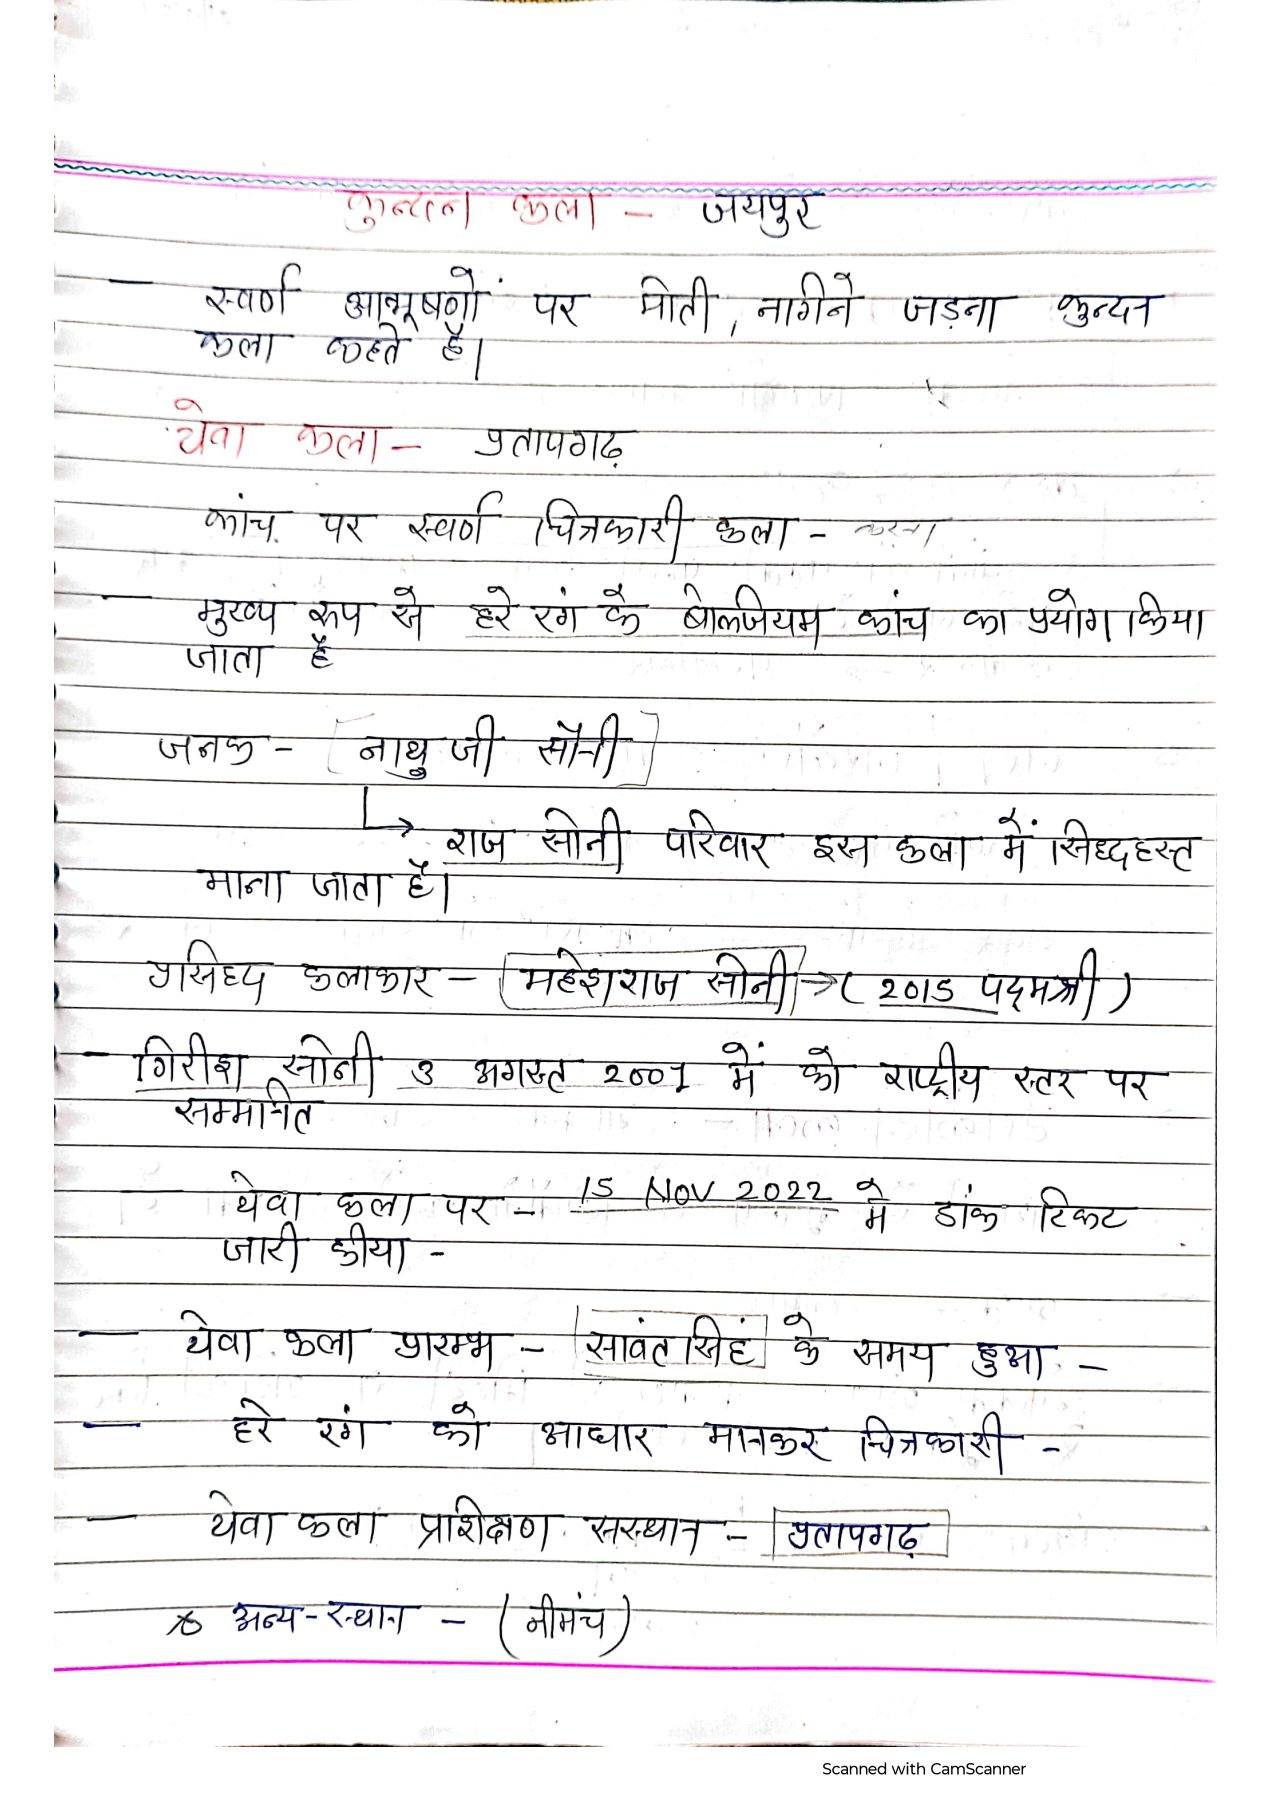 कुन्दन कला - जयपुर
- स्वर्ण आभूषणों पर मोती, नागीने जड़ना कुन्दन
कला कहते है।
थेवा कला - प्रतापगढ़
कांच पर स्वर्ण चित्रकारी कला - करना
- मुख्य रूप से हरे रंग के बोल्जियम कांच का प्रयोग किया
जाता है
जनक - नाथु जी सोनी
↳ राज सोनी परिवार इस कला में सिध्दहस्त
माना जाता है।
प्रसिध्द कलाकार - महेशराज सोनी → (2015 पद्मश्री)
- गिरीश सोनी 3 अगस्त 2001 में को राष्ट्रीय स्तर पर
सम्मानित
- थेवा कला पर - 15 Nov 2022 मे डांक टिकट
जारी कीया -
- थेवा कला प्रारम्भ - सावंत सिहं के समय हुआ -
- हरे रंग को आधार मानकर चित्रकारी -
- थेवा कला प्रशिक्षण संस्थान - प्रतापगढ़
अन्य-स्थान - (नीमंच)
Scanned with CamScanner